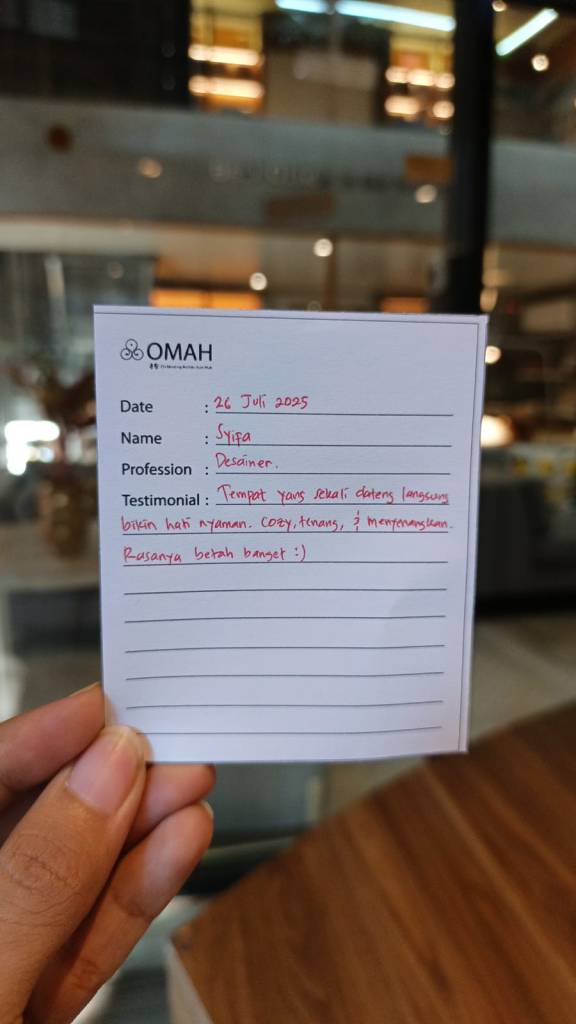 OMAH
Date : 26 Juli 2025
Name : Syifa
Profession : Desainer.
Testimonial : Tempat yang sekali dateng langsung
bikin hati nyaman. Cozy, tenang, & menyenangkan.
Rasanya betah banget :)